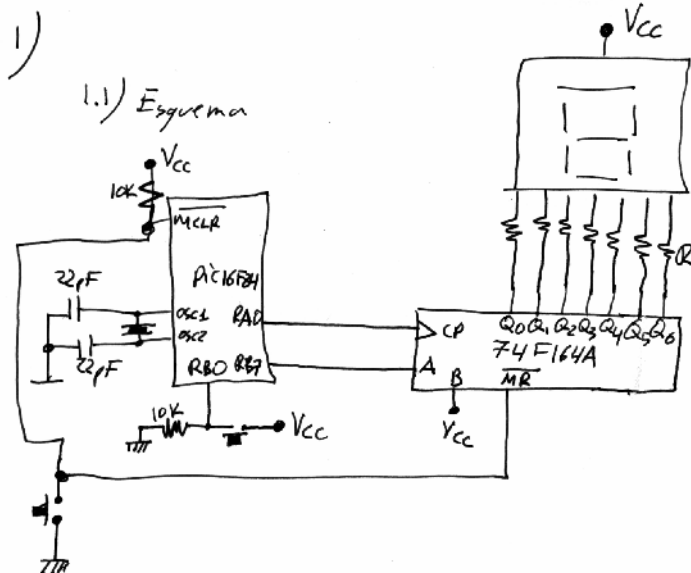 1)
1.1) Esquema
Vcc
Vcc
10K
MCLR
PIC16F84
22pF
OSC1
RA0
OSC2
22pF
RB0 RB7
10K
Vcc
R
CP Q0 Q1 Q2 Q3 Q4 Q5 Q6
74F164A
A B MR
Vcc